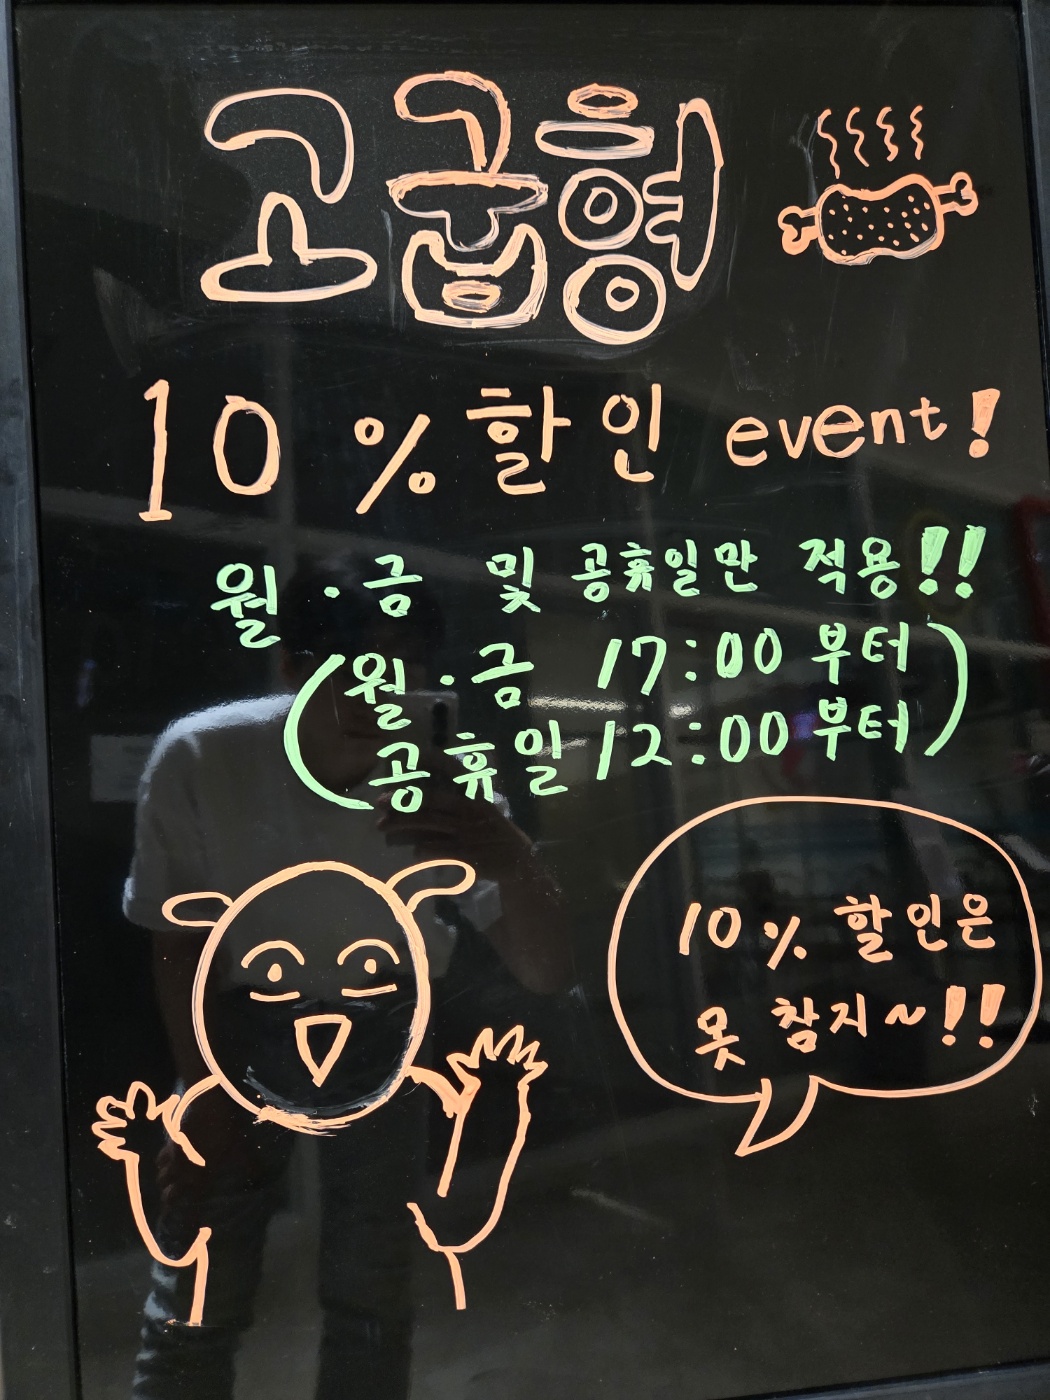 고굽형
10% 할인 event!
월·금 및 공휴일만 적용!!
(월·금 17:00 부터
공휴일 12:00 부터)
10% 할인은
못 참지~!!